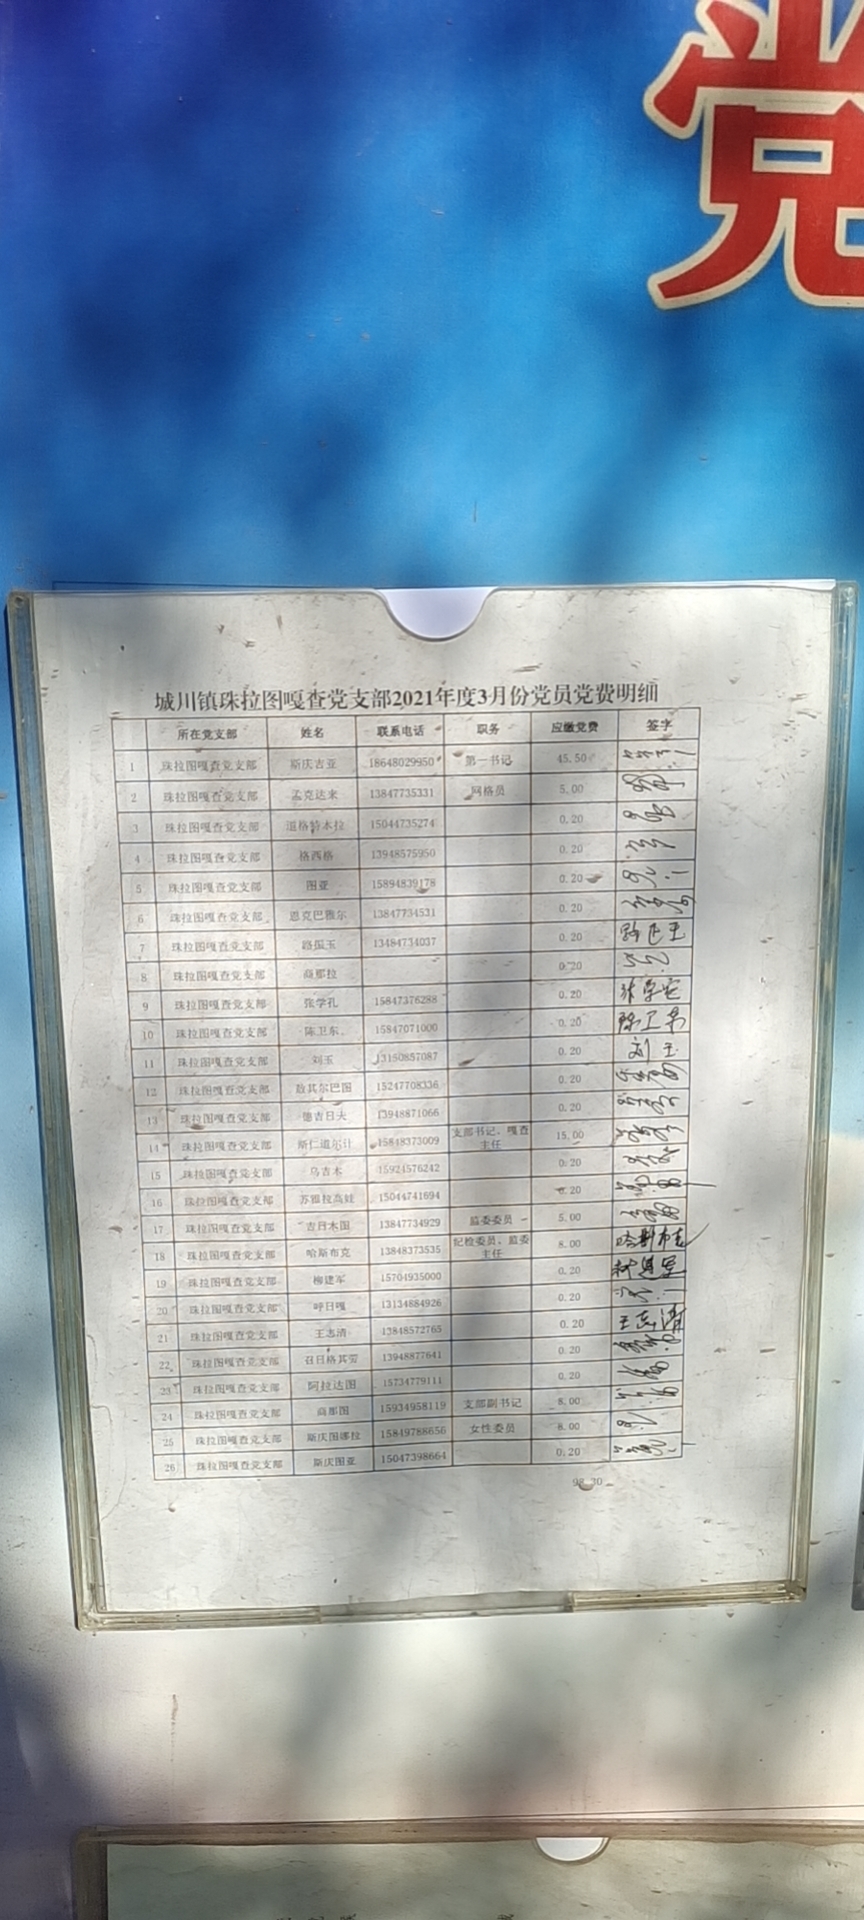 党
城川镇珠拉图嘎查党支部2021年度3月份党员党费明细
所在党支部 姓名 联系电话 职务 应缴党费 签字
1 珠拉图嘎查党支部 斯庆吉亚 18648029950 第一书记 45.50
2 珠拉图嘎查党支部 孟克达来 13847735331 网格员 5.00
3 珠拉图嘎查党支部 道格特木拉 15044735274 0.20
4 珠拉图嘎查党支部 格西格 13948575950 0.20
5 珠拉图嘎查党支部 图亚 15894839178 0.20
6 珠拉图嘎查党支部 恩克巴雅尔 13847734531 0.20
7 珠拉图嘎查党支部 路振玉 13484734037 0.20
8 珠拉图嘎查党支部 商那拉 0.20
9 珠拉图嘎查党支部 张学礼 15847376288 0.20
10 珠拉图嘎查党支部 陈卫东 15847071000 0.20 陈卫东
11 珠拉图嘎查党支部 刘玉 13150857087 0.20 刘玉
12 珠拉图嘎查党支部 敖其尔巴图 15247708336 0.20
13 珠拉图嘎查党支部 德吉日夫 13948871066 0.20
14 珠拉图嘎查党支部 斯仁道尔计 15848373009 支部书记、嘎查主任 15.00
15 珠拉图嘎查党支部 乌吉木 15924576242 0.20
16 珠拉图嘎查党支部 苏雅拉高娃 15044741694 0.20
17 珠拉图嘎查党支部 吉日木图 13847734929 监委委员 5.00
18 珠拉图嘎查党支部 哈斯布克 13848373535 纪检委员、监委主任 8.00 哈斯布克
19 珠拉图嘎查党支部 柳建军 15704935000 0.20 柳建军
20 珠拉图嘎查党支部 呼日嘎 13134884926 0.20
21 珠拉图嘎查党支部 王志清 13848572765 0.20 王志清
22 珠拉图嘎查党支部 召日格其劳 13948877641 0.20
23 珠拉图嘎查党支部 阿拉达图 15734779111 0.20
24 珠拉图嘎查党支部 商那图 15934958119 支部副书记 8.00
25 珠拉图嘎查党支部 斯庆图娜拉 15849788656 女性委员 8.00
26 珠拉图嘎查党支部 斯庆图亚 15047398664 0.20
98.30